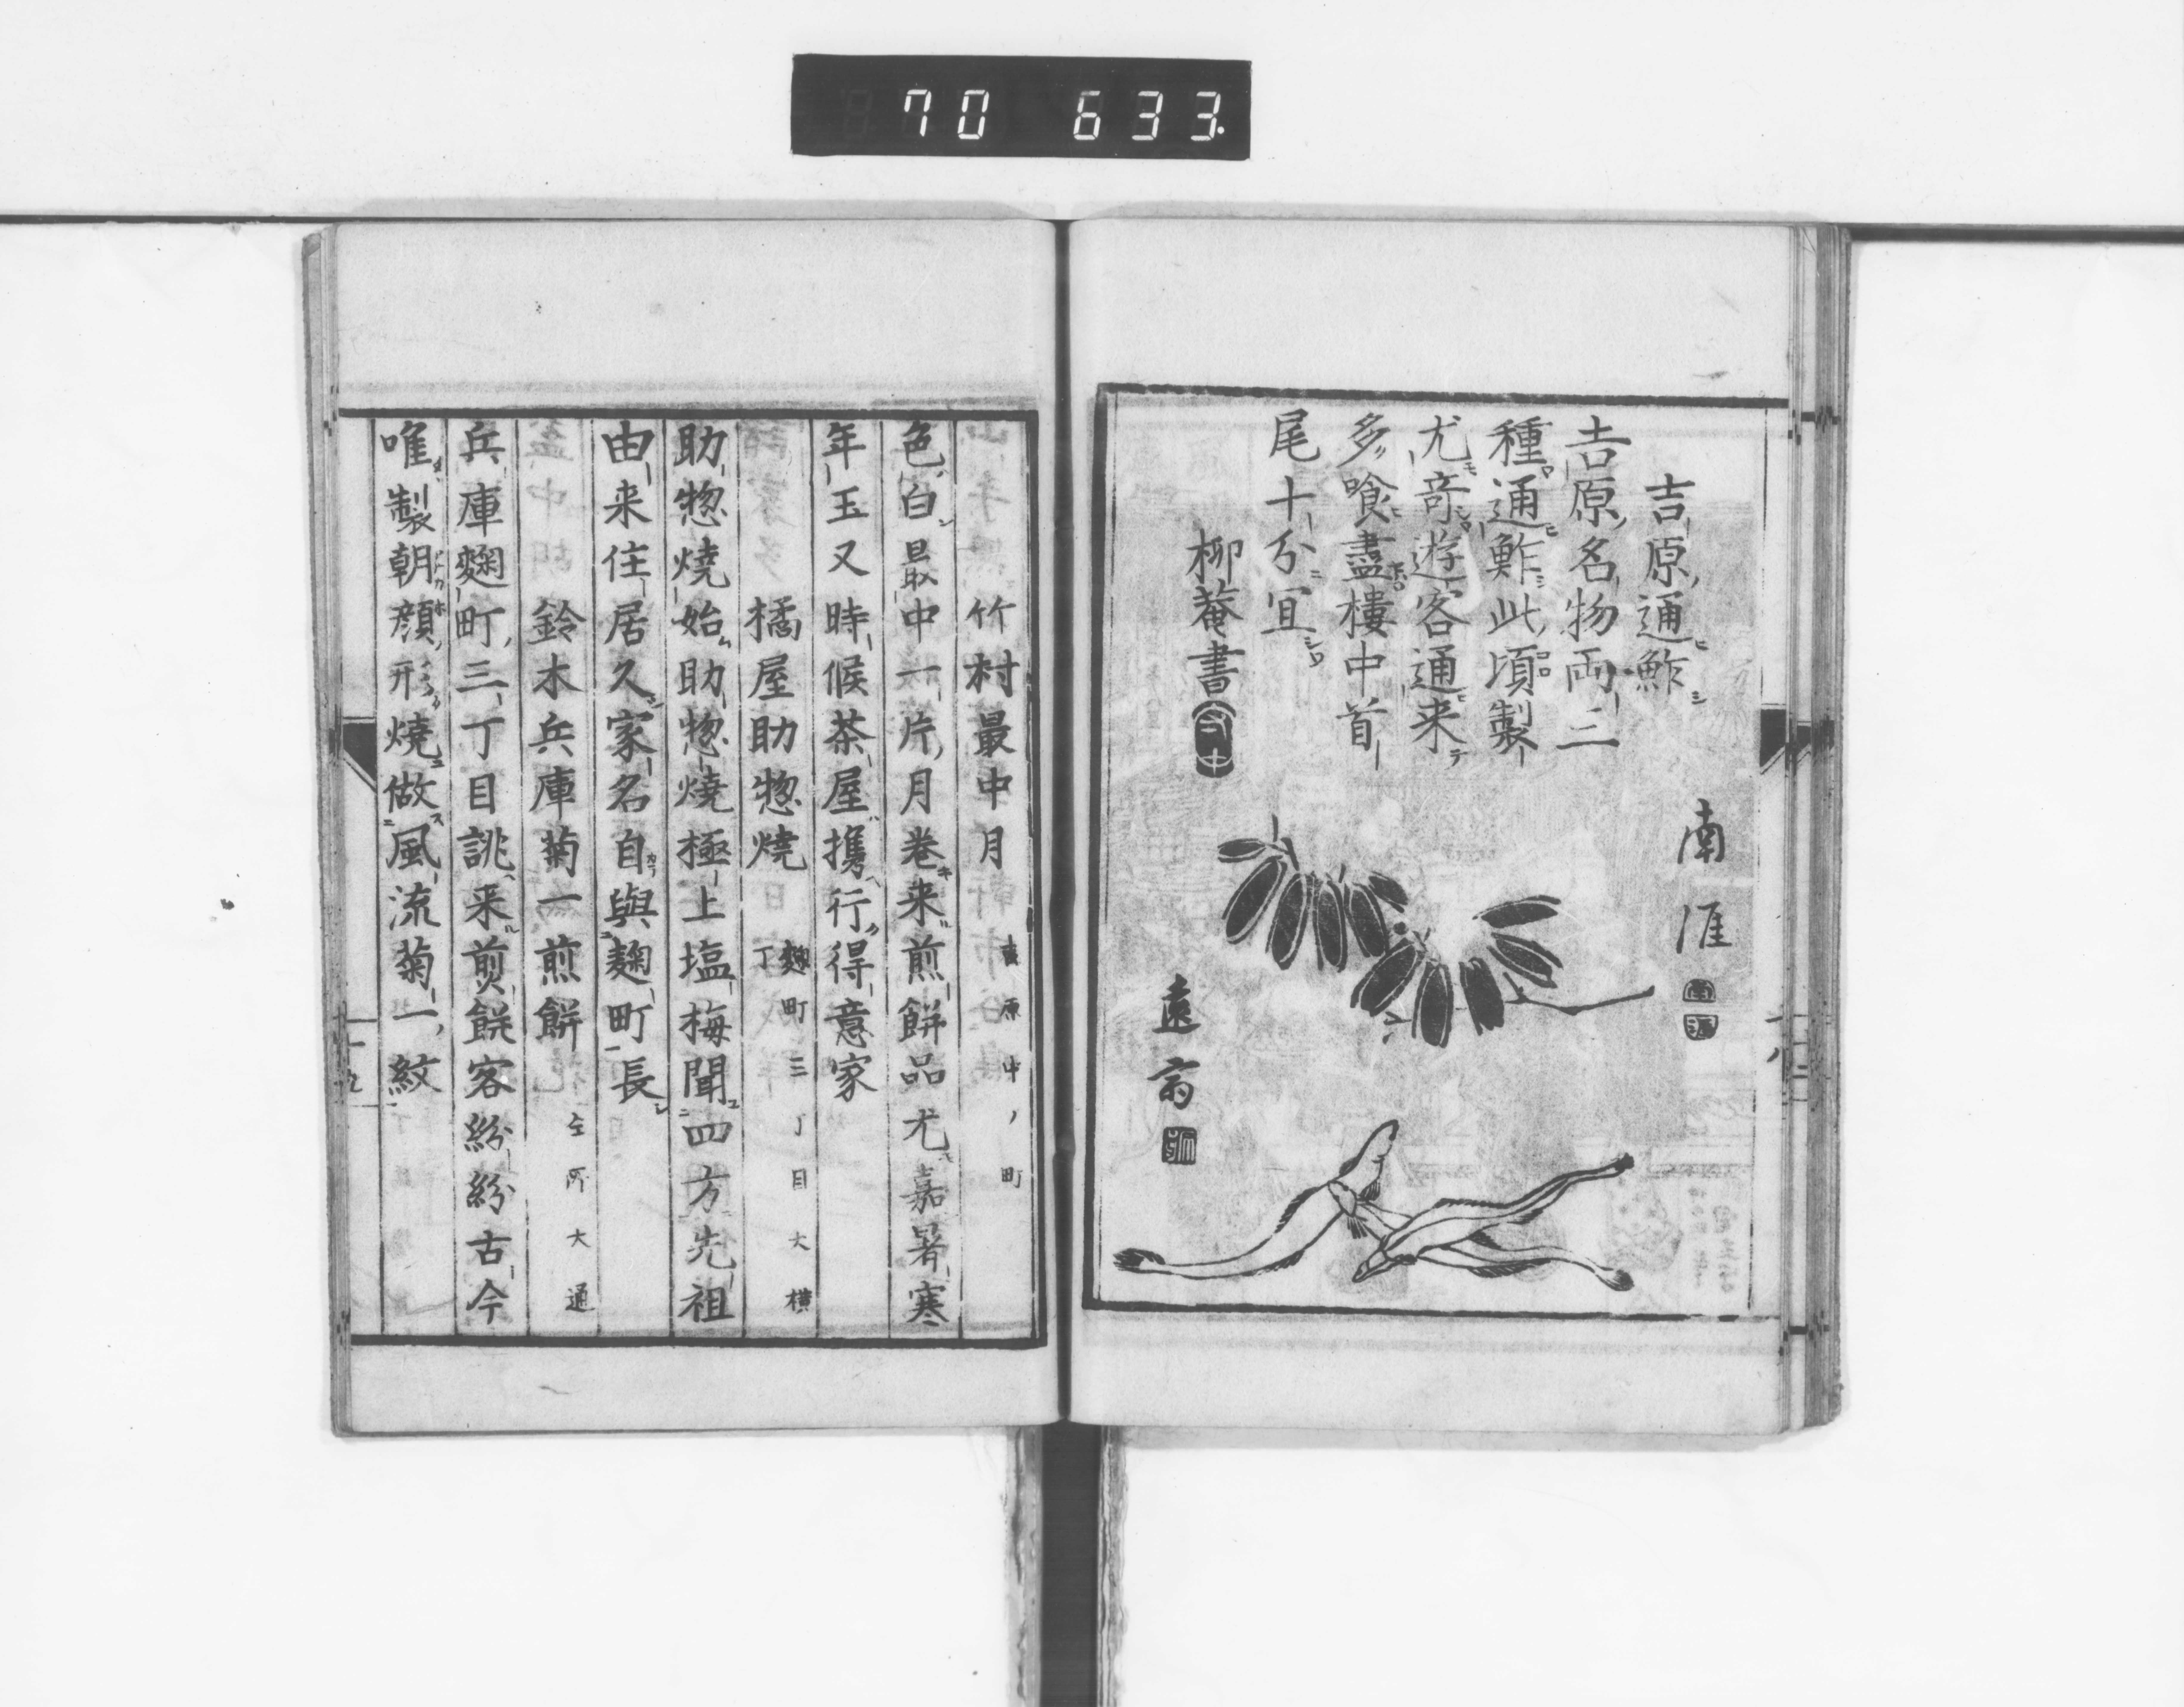 70 633
吉原通鮓
南涯
吉原名物両三
種通鮓此頃製
尤奇遊客通来
多喰盡樓中首
尾十分宜
柳菴書
遠斎
竹村最中月 吉原中ノ町
色白最中一片月巻来煎餅品尤嘉暑寒
年玉又時候茶屋携行得意家
橘屋助惣焼 麹町三丁目大横丁
助惣焼始助惣焼極上塩梅聞四方先祖
由来住居久家名自與麹町長
鈴木兵庫菊一煎餅 仝所大通
兵庫麹町三丁目誂来煎餅客紛紛古今
唯製朝顔形焼做風流菊一紋